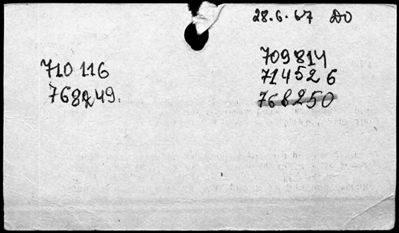 28.6.67 DO
710 116
768249.
709814
714526
768250